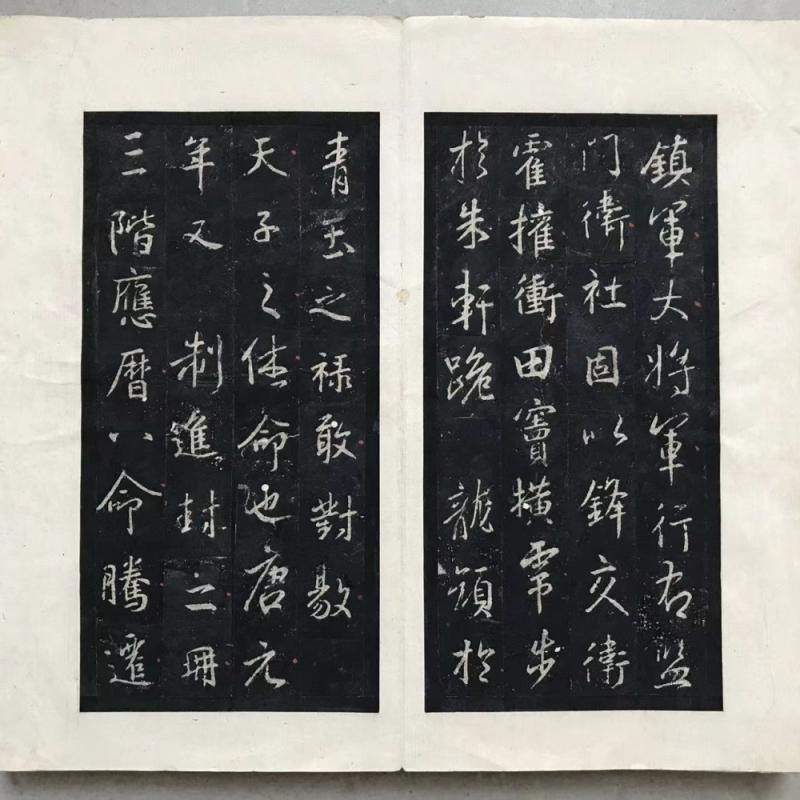 鎮軍大将軍行右監
門衛社固以鋒交衛
霍權衝田竇橫虎步
於朱軒跪龍頟於
青玉之禄敢對敭
天子之休命也唐元
年又制進封二冊
三階應曆八命騰遷